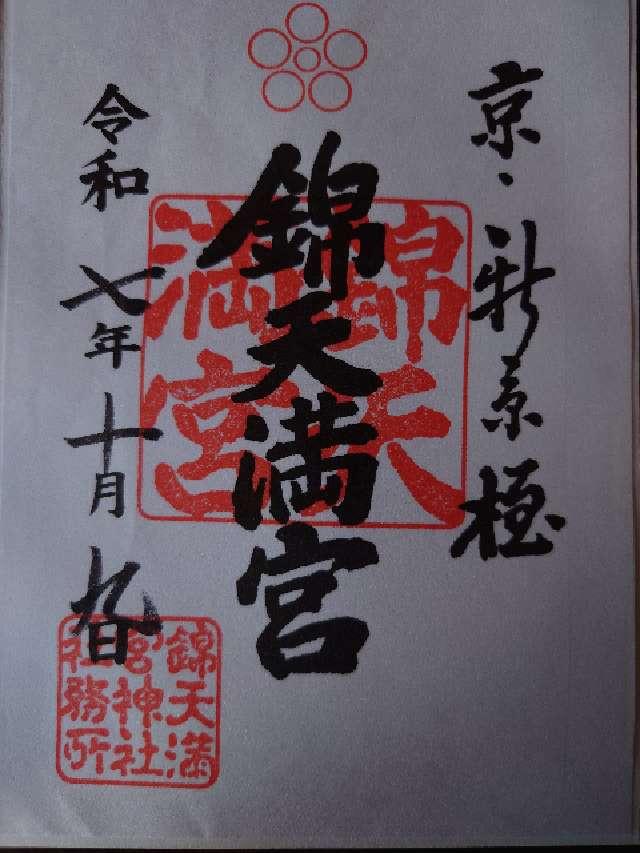 京・新京極
錦天満宮
錦天
満宮
令和七年十月九日
錦天満
宮神社
社務所